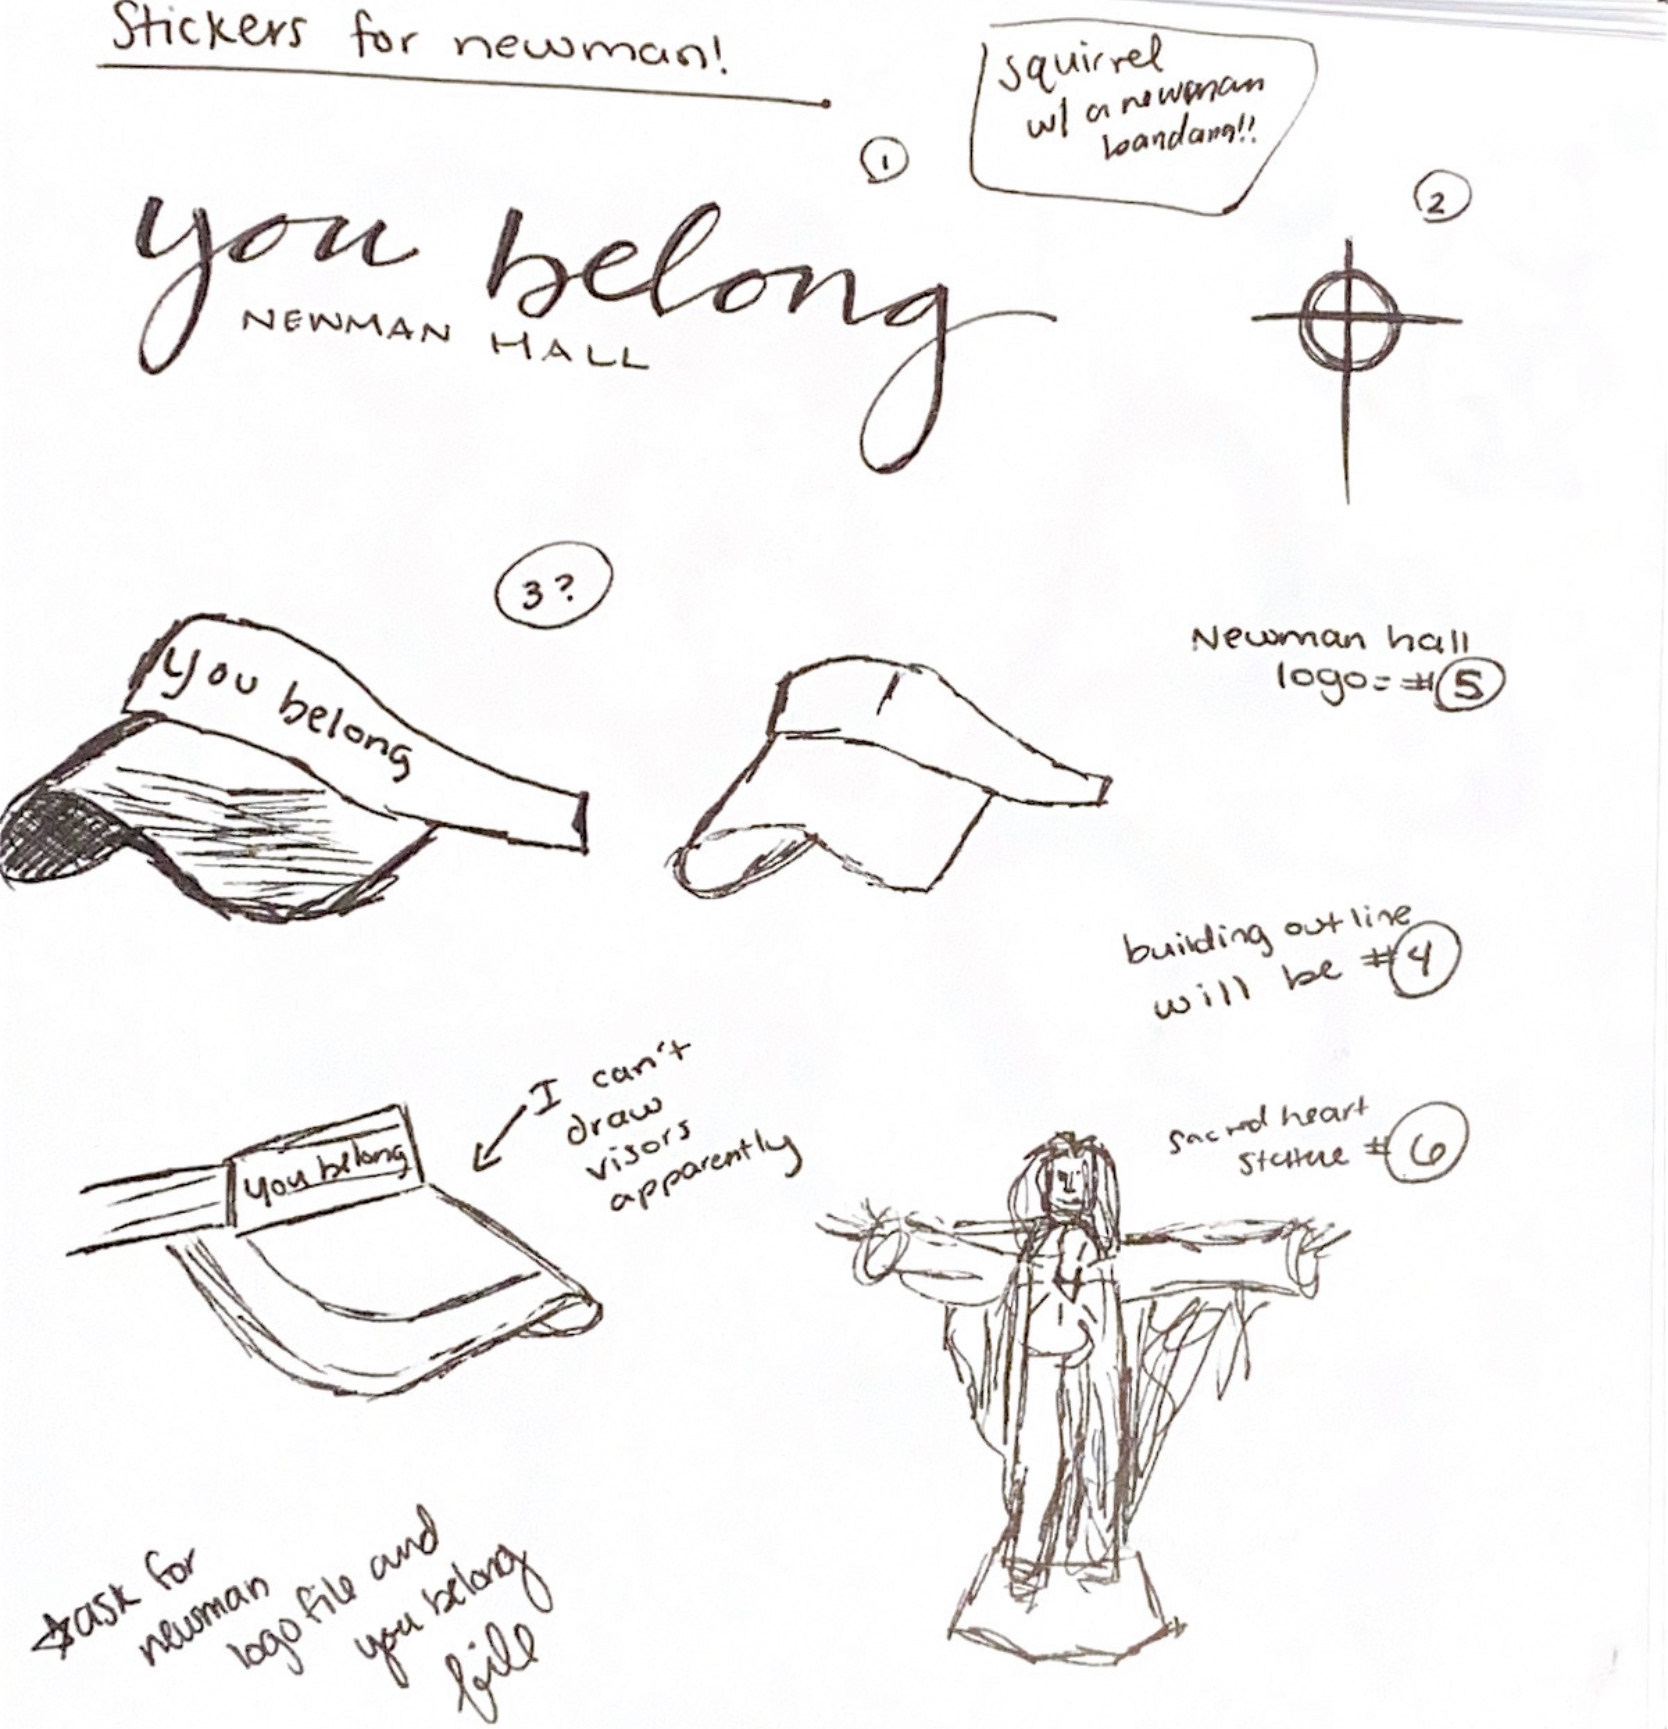 Stickers for newman!
squirrel
w/ a newman
bandana!!
1
2
you belong
NEWMAN HALL
3?
you belong
Newman hall
logo = #5
building outline
will be #4
I can't
draw
visors
apparently
you belong
sacred heart
statue #6
☆ask for
newman
logo file and
you belong
file